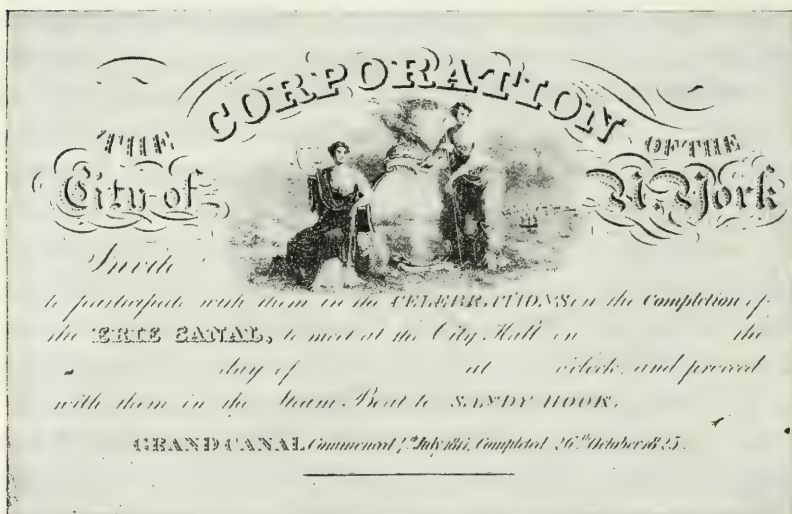 THE CORPORATION OF THE
City of N. York
Invite
to participate with them in the CELEBRATIONS on the Completion of
the ERIE CANAL, to meet at the City Hall on the
day of at o'clock and proceed
with them in the Steam Boat to SANDY HOOK.
GRAND CANAL Commenced 4th July 1817, Completed 26th October 1825.